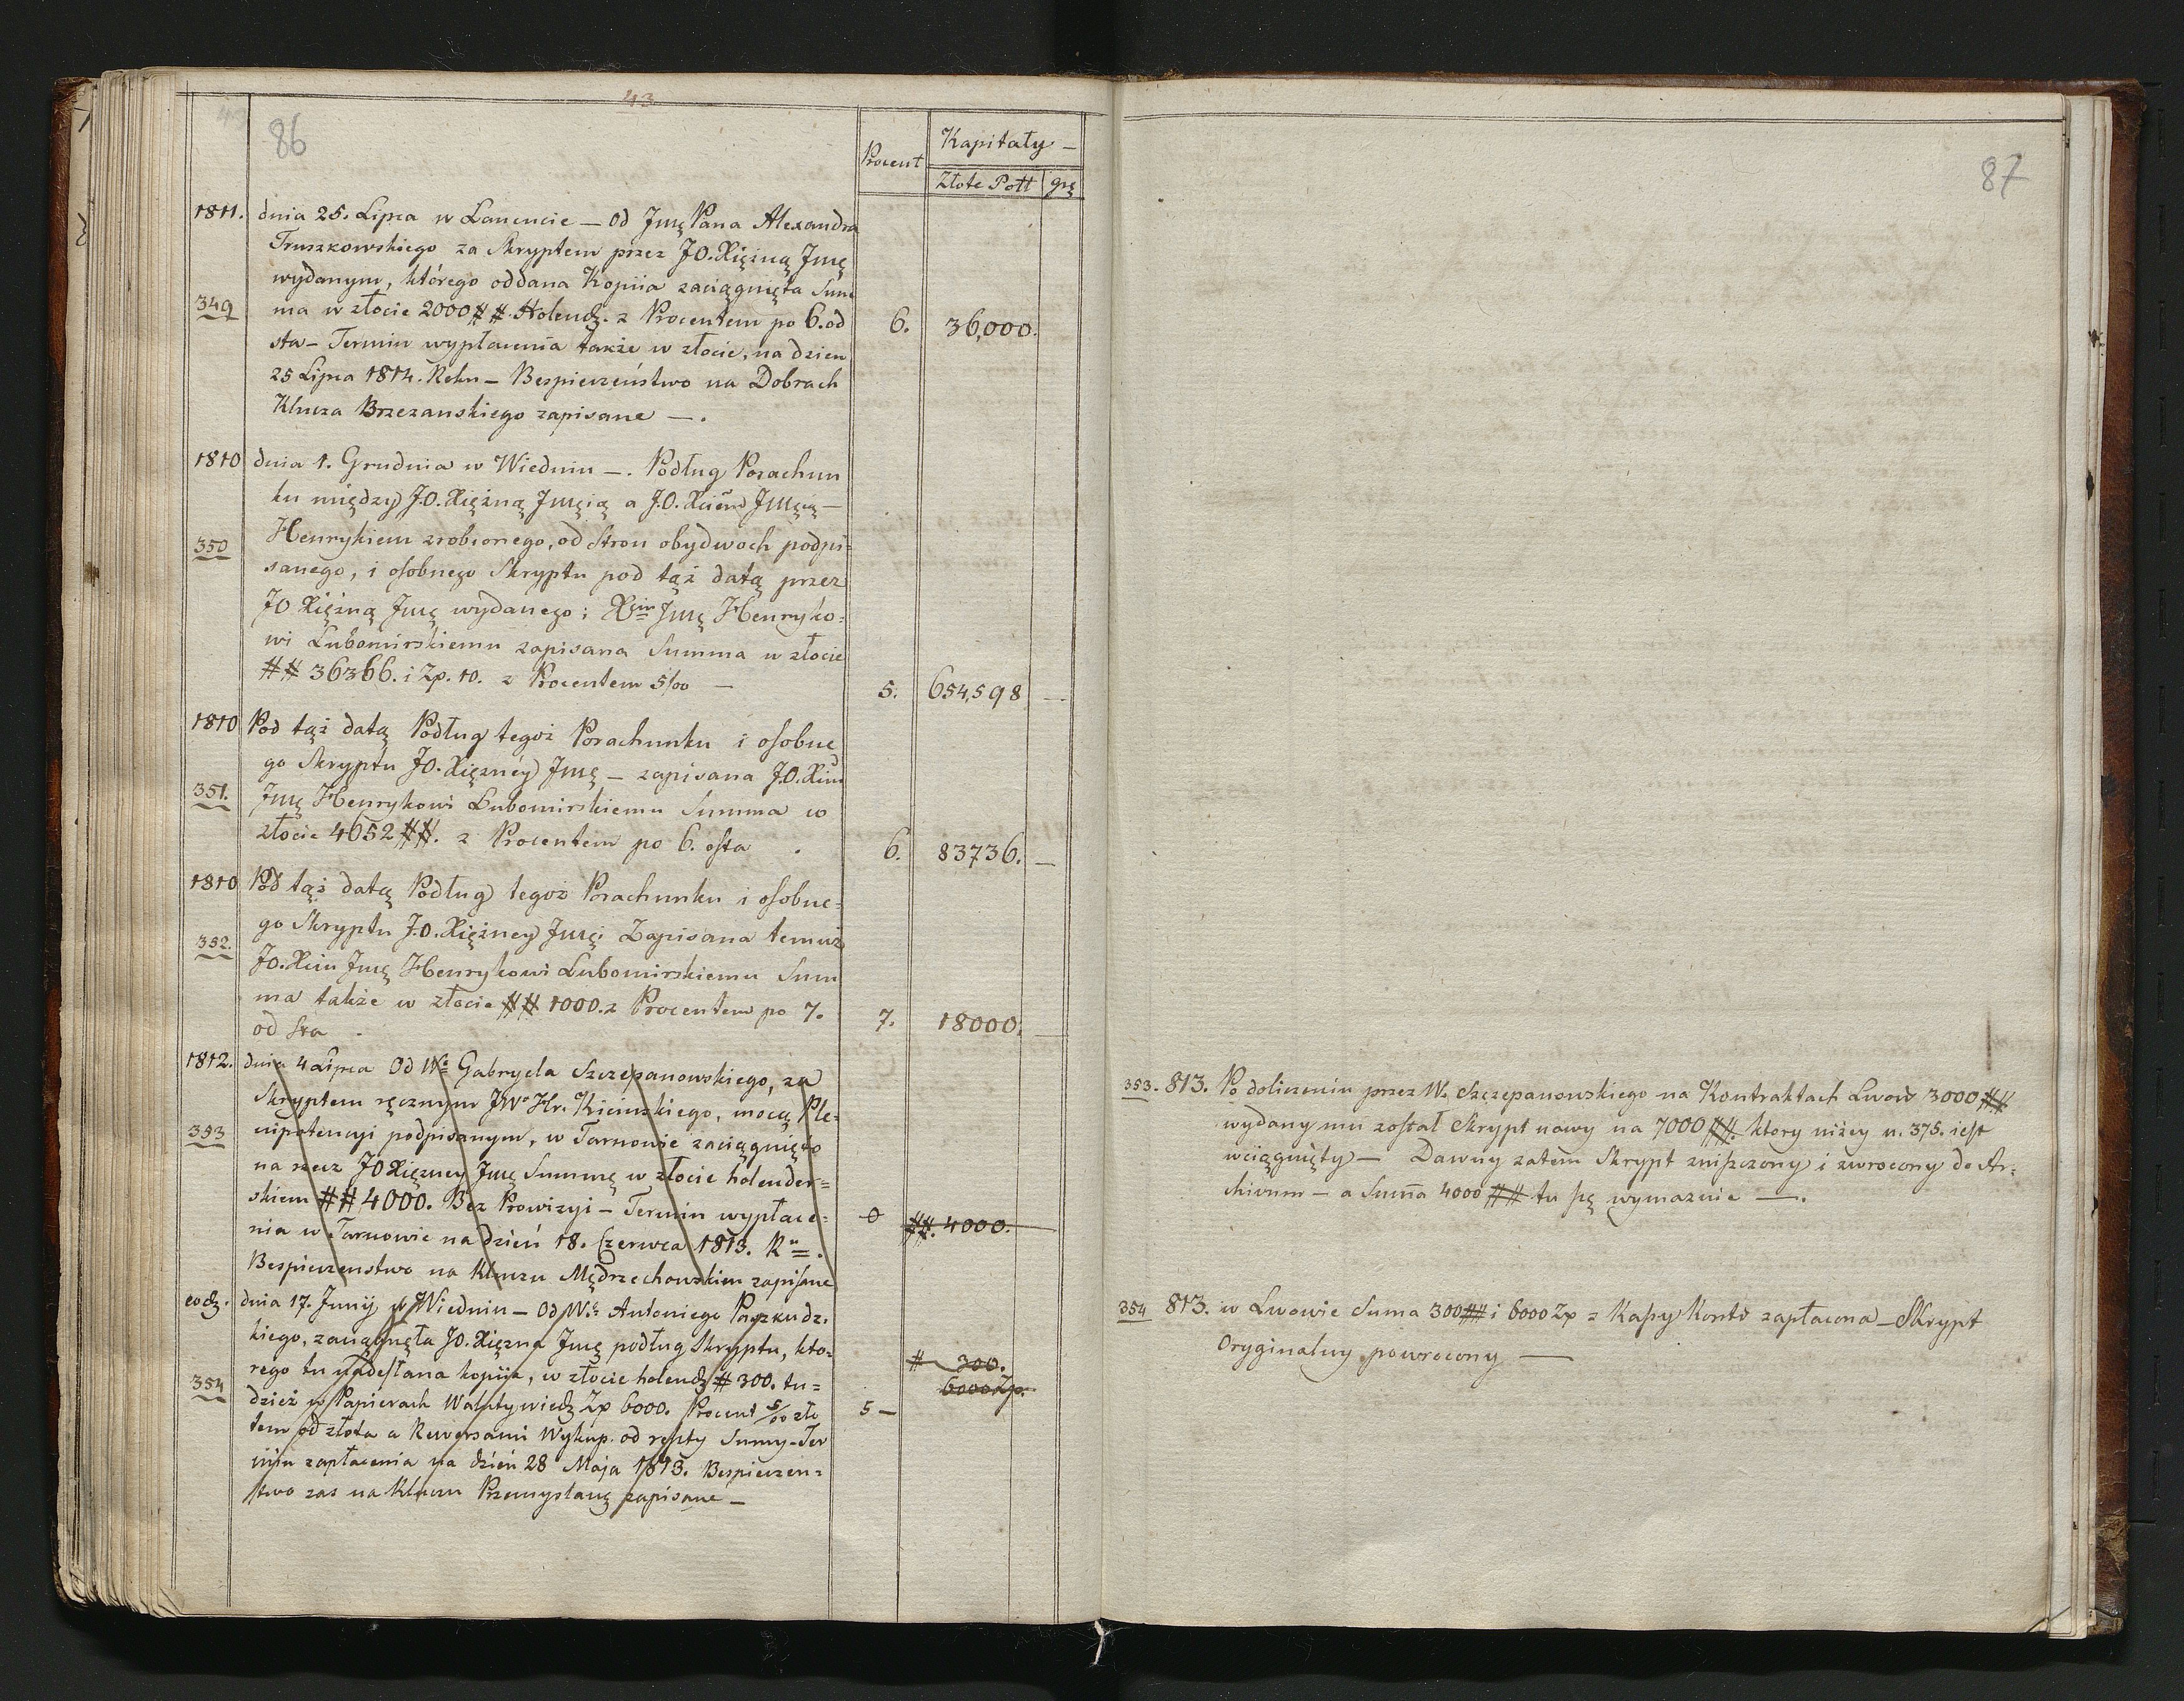 43
86
Procent
Kapitały —
Złote Poll
grę
1811. dnia 25. Lipca w Lancucie — Od Jmę Pana Alexandra
Truszkowskiego za Skryptem przez JO. Xiężną Jmę
wydanym, którego oddana Kopiia zaciągnięta Sum
349 ma w złocie 2000 ## Holendz. z Procentem po 6. od 6. 36,000.
sta — Termin wypłacenia także w złocie, na dzien
25 Lipca 1814. Roku — Bespieczeństwo na Dobrach
Klucza Brzezanskiego zapisane —.
1810 dnia 1. Grudnia w Wiedniu —. Podług Porachun
ku między J.O. Xiężną Jmęią a J.O. Xciem Jmęią —
350 Henrykiem zrobionego, od Stron obydwoch podpi=
sanego, i osobnego Skryptu pod tąż datą przez
JO Xiężną Jmę wydanego; Xciu Jmę Henryko=
wi Lubomirskiemu zapisana Summa w złocie
## 36366. i Zp. 10. z Procentem 5/00 — 5. 654,598 —
1810 Pod tąż datą Podług tegoż Porachunku i osobne
go Skryptu JO. Xiężnéy Jmę — zapisana J.O. Xciu
351. Jmę Henrykowi Lubomirskiemu Summa w
złocie 4652 ##. z Procentem po 6. osta . 6. 83736. —
1810 Pod tąż datą Podług tegoż Porachunku i osobne=
go Skryptu J.O. Xiężney Jmęi Zapisana temuż
352. JO. Xciu Jmę Henrykowi Lubomirskiemu Sum
ma także w złocie ## 1000. z Procentem po 7.
od Sta . 7. 18000. —
1812. dnia 4 Lipca Od Wo Gabryela Szczepanowskiego, za
Skryptem ręcznym JWo Hr. Kicinskiego, mocą Ple=
353 nipotencyi podpisanym, w Tarnowie zaciągnięto
na rzecz JO Xiężney Jmę Summę w złocie holender=
skiem ## 4000. Bez Prowizyi — Termin wypłace= 0 ##. 4000.
nia w Tarnowie na dzień 18. Czerwca 1813. Ru.
Bespieczenstwo na Kluczu Mędrzechowskim zapisane
eodz. dnia 17. Junij w Wiedniu — Od Wo Antoniego
kiego, zaciągnęła JO. Xiężna Jmę podług Skryptu, kto=
rego tu nadesłana kopija, w złocie holendz # 300. tu= # 300.
354 dzież w Papierach Zp 6000. Procent 5/00 zło 5 — 6000 Zp.
tem od złota a Rewersami Wykup. od reszty Sumy — Ter
min zapłacenia na dzień 28 Maja 1813. Bespieczen=
stwo zas na Kluczu zapisane —
87
353. 813. Po doliczeniu przez W. Szczepanowskiego na Kontraktach Lwow 3000 ##
wydany mu został Skrypt nowy na 7000 ##. ktory niżey n. 375. iest
wciągnięty — Dawny zatem Skrypt zniszczony i zwrocony do Ar=
chivum — a Suma 4000 ## tu się wymazuie —.
354 813. w Lwowie Suma 300 ## i 6000 Zp z Kassy Kontó zapłacona — Skrypt
Oryginalny powrocony —